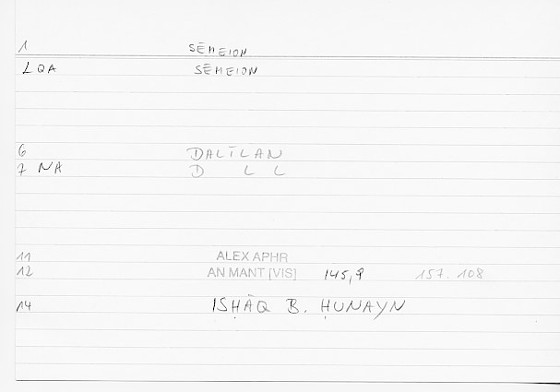 1 SĒMEION
2 QA SĒMEION
6 DALĪLAN
7 NA D L L
11 ALEX APHR
12 AN MANT [VIS] 145,9 157.108
14 ISḤĀQ B. ḤUNAYN